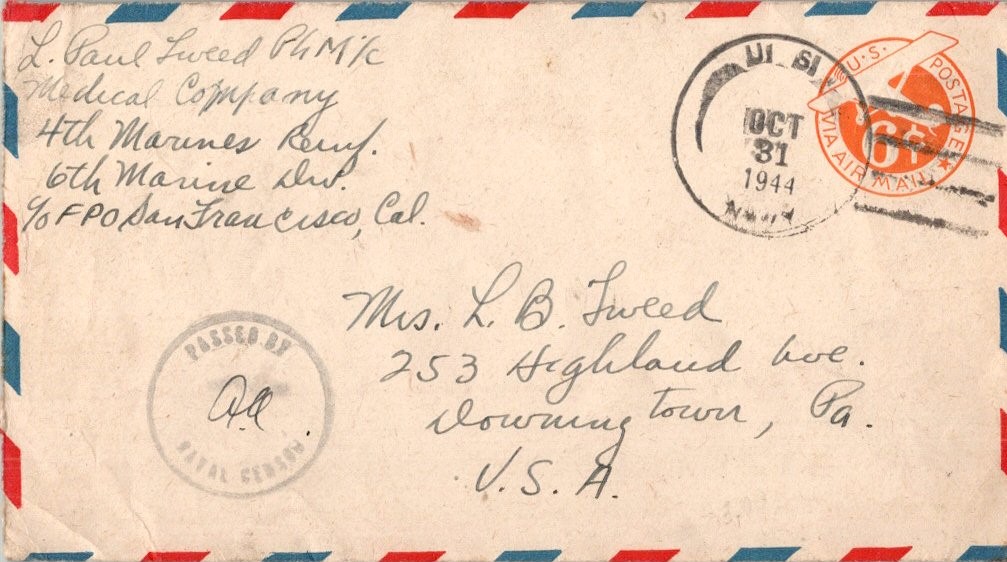 L. Paul Tweed PhM1/c
Medical Company
4th Marines Reinf.
6th Marine Div.
c/o FPO San Francisco, Cal.
OCT
31
1944
U.S. POSTAGE
6¢
VIA AIR MAIL
Mrs. L. B. Tweed
253 Highland Ave.
Downingtown, Pa.
U.S.A.
PASSED BY
NAVAL CENSOR